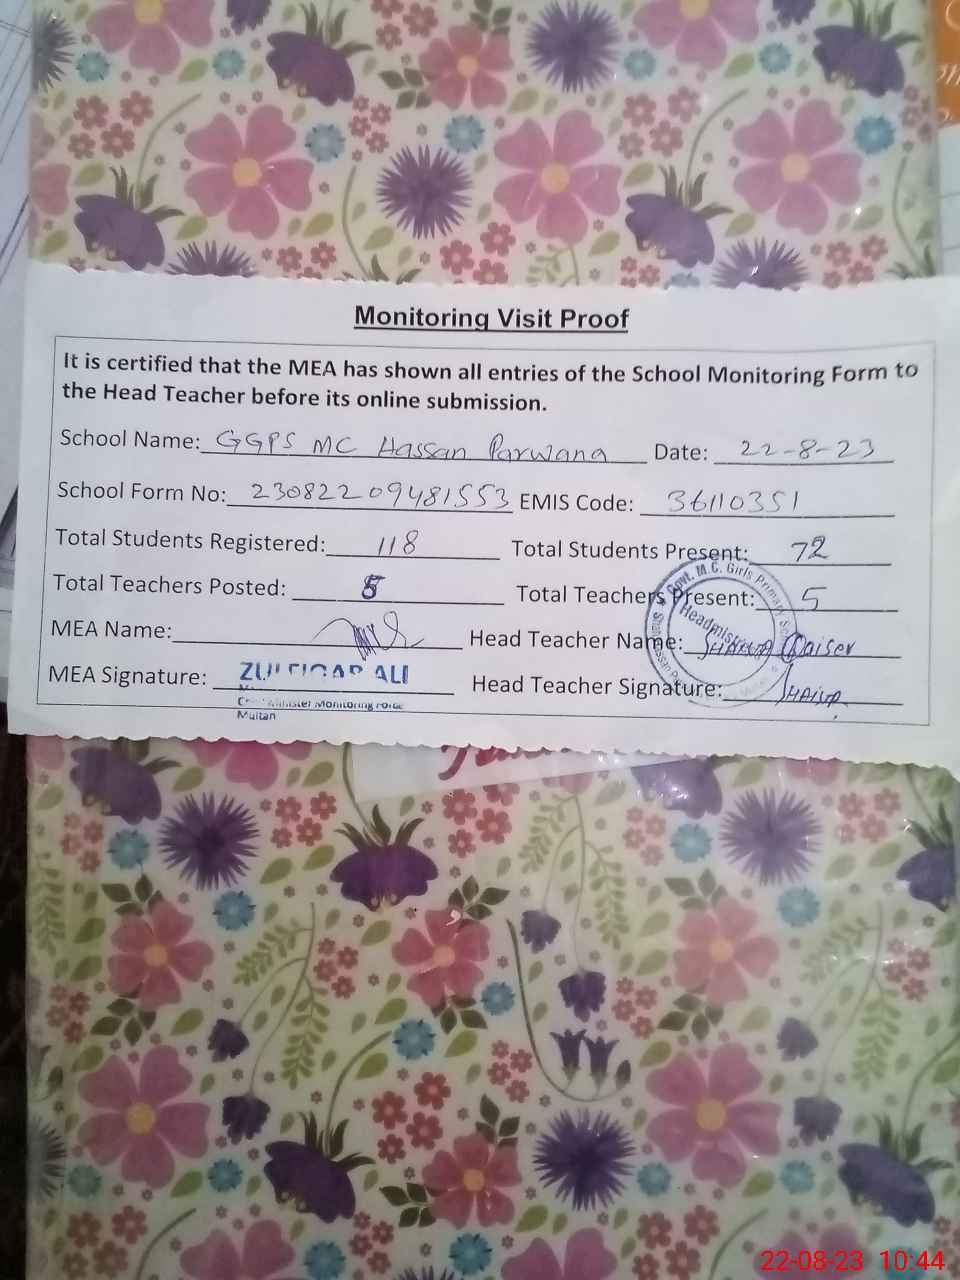 Monitoring Visit Proof
It is certified that the MEA has shown all entries of the School Monitoring Form to
the Head Teacher before its online submission.
School Name: GGPS MC Hassan Parwana Date: 22-8-23
School Form No: 23082209481553 EMIS Code: 36110351
Total Students Registered: 118 Total Students Present: 72
Total Teachers Posted: 5 Total Teachers Present: 5
MEA Name: Head Teacher Name: Qaiser
MEA Signature: ZULFIQAR ALI Head Teacher Signature:
Monitoring Force
Multan
Govt. M.C. Girls Primary
Headmistress
22-08-23 10:44